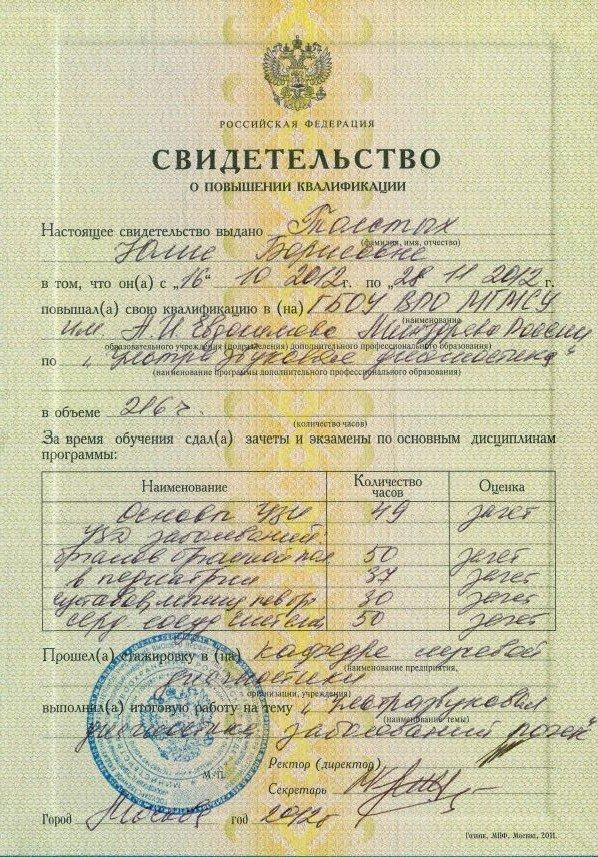 РОССИЙСКАЯ ФЕДЕРАЦИЯ
СВИДЕТЕЛЬСТВО
О ПОВЫШЕНИИ КВАЛИФИКАЦИИ
Настоящее свидетельство выдано Толстых
(фамилия, имя, отчество)
Юлие Борисовне
в том, что он(а) с „16" 10 2012 г. по „28 11 2012 г.
повышал(а) свою квалификацию в (на) ГБОУ ВПО МГМСУ
(наименование
им А И Евдокимова Минздрава России
образовательного учреждения (подразделения) дополнительного профессионального образования)
по „Ультразвуковая диагностика"
(наименование программы дополнительного профессионального образования)
в объеме 216 ч.
(количество часов)
За время обучения сдал(а) зачеты и экзамены по основным дисциплинам
программы:
Наименование Количество часов Оценка
Основы УЗИ 49 зачет
УЗД заболеваний
органов брюшной пол 50 зачет
в педиатрии 37 зачет
суставов, 30 зачет
серд. сосуд системы 50 зачет
Прошел(а) стажировку в (на) кафедре лучевой
(наименование предприятия,
диагностики
организации, учреждения)
выполнил(а) итоговую работу на тему „Ультразвуковая
(наименование темы)
диагностика заболеваний почек"
Ректор (директор)
М.П.
Секретарь
Город Москва год 2012
Гознак, МПФ, Москва, 2011.